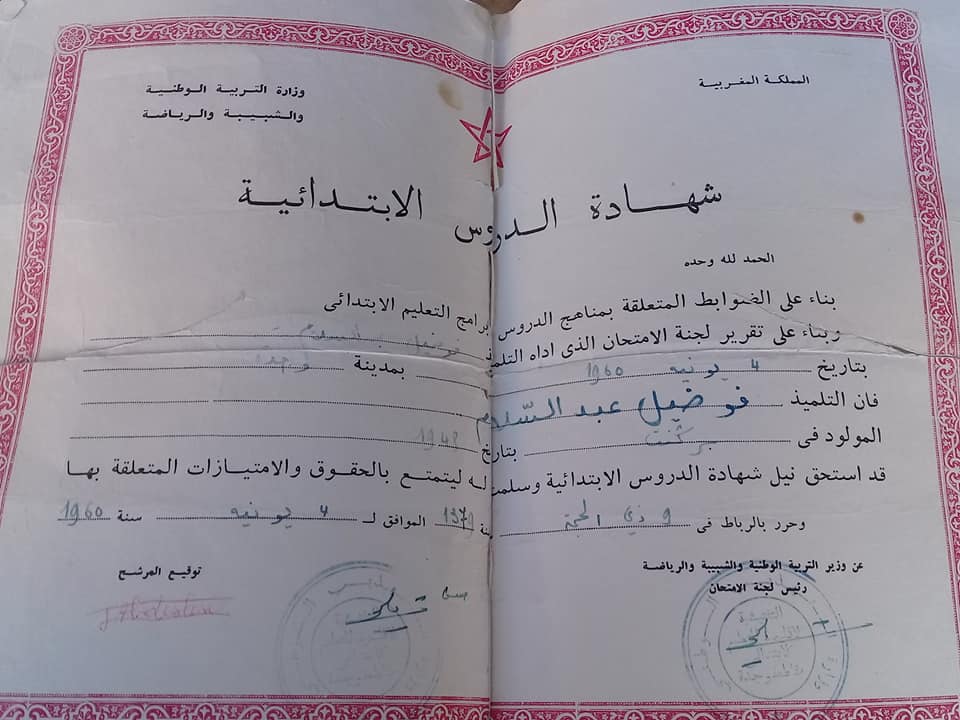 المملكة المغربية
وزارة التربية الوطنية
والشبيبة والرياضة
شهادة الدروس الابتدائية
الحمد لله وحده
بناء على الضوابط المتعلقة بمناهج الدروس وبرامج التعليم الابتدائى
وبناء على تقرير لجنة الامتحان الذى اداه التلميذ فوضيل عبد السلام
بتاريخ 4 يونيه 1960 بمدينة وجدة
فان التلميذ فوضيل عبد السّلام
المولود فى بركنت بتاريخ 1948
قد استحق نيل شهادة الدروس الابتدائية وسلمت له ليتمتع بالحقوق والامتيازات المتعلقة بها
وحرر بالرباط فى 9 ذي الحجة سنة 1379 الموافق لـ 4 يونيه سنة 1960
عن وزير التربية الوطنية والشبيبة والرياضة
رئيس لجنة الامتحان
توقيع المرشح